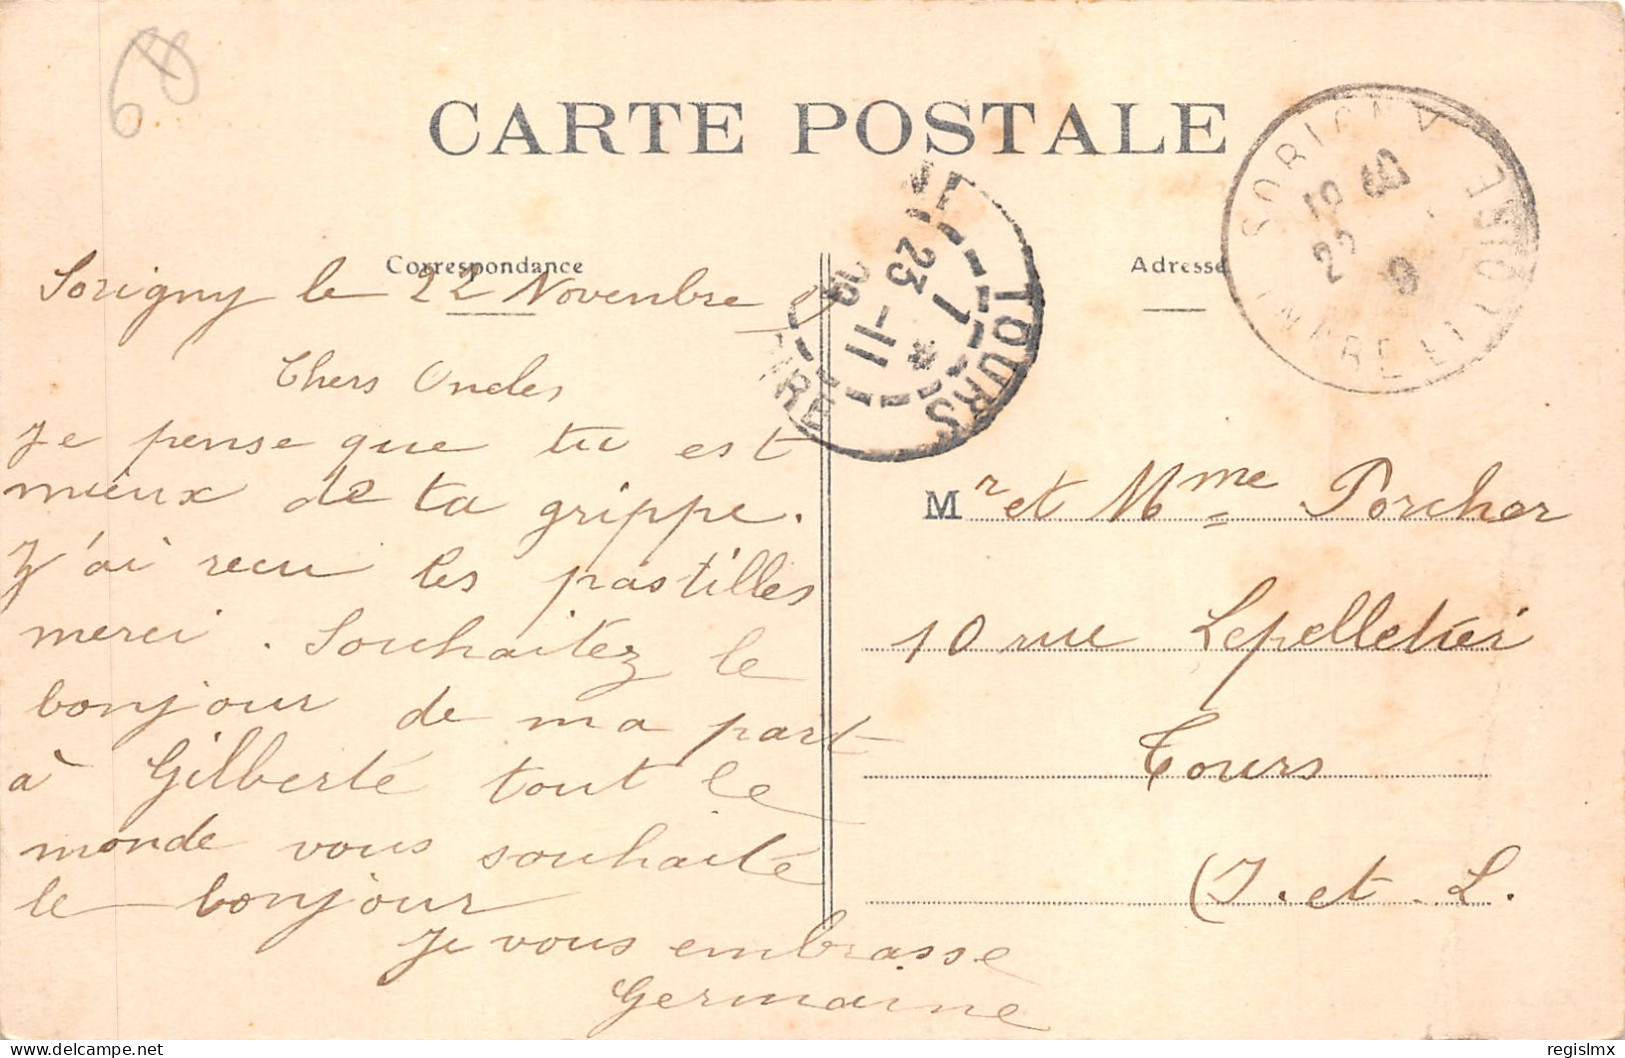 CARTE POSTALE
Correspondance
Adresse
Sorigny le 22 Novembre
Chers Oncles
Je pense que tu est
mieux de ta grippe.
J'ai recu les pastilles
merci. Souhaitez le
bonjour de ma part
à Gilberte tout le
monde vous souhaite
le bonjour
Je vous embrasse
Germaine
Mr et Mme Porcher
10 rue Lepelletier
Tours
(I. et. L.
TOURS
23 -11
09
SORIGNY
INDRE ET LOIRE
delcampe.net
regislmx